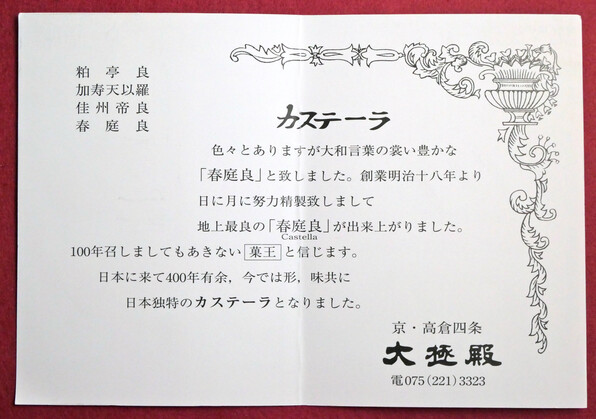 粕亭良
加寿天以羅
佳州帝良
春庭良
カステーラ
色々とありますが大和言葉の装い豊かな
「春庭良」と致しました。創業明治十八年より
日に月に努力精製致しまして
地上最良の「春庭良」が出来上がりました。
Castella
100年召しましてもあきない 菓王 と信じます。
日本に来て400年有余，今では形，味共に
日本独特のカステーラとなりました。
京・高倉四条
大極殿
電075(221)3323